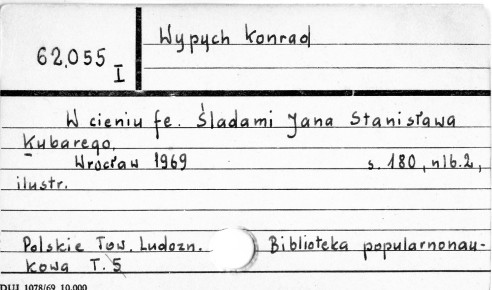 62.055
I
Wypych Konrad
W cieniu fe. Śladami Jana Stanisława
Kubarego.
Wrocław 1969 s. 180, nlb. 2,
ilustr.
Polskie Tow. Ludozn. Biblioteka popularnonau-
kowa T. 5
DUJ 1078/69 10.000